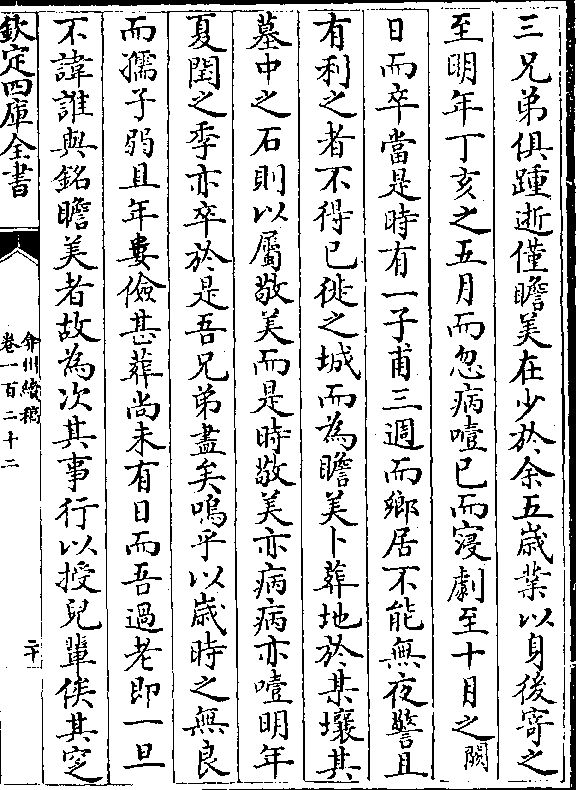 三兄弟俱踵逝僅瞻美在少於余五歲業以身後寄之
至明年丁亥之五月而忽病噎已而寖劇至十月之闕
日而卒當是時有一子甫三週而鄉居不能無夜警且
有利之者不得已徙之城而為瞻美卜葬地於某壤其
墓中之石則以屬敬美而是時敬美亦病病亦噎明年
夏閏之季亦卒於是吾兄弟盡矣嗚乎以歲時之無良
而孺子弱且年婁儉甚葬尚未有日而吾過老即一旦
不諱誰與銘瞻美者故為次其事行以授兒輩俟其窆
欽定四庫全書
弇州續稿
卷一百二十二
二十